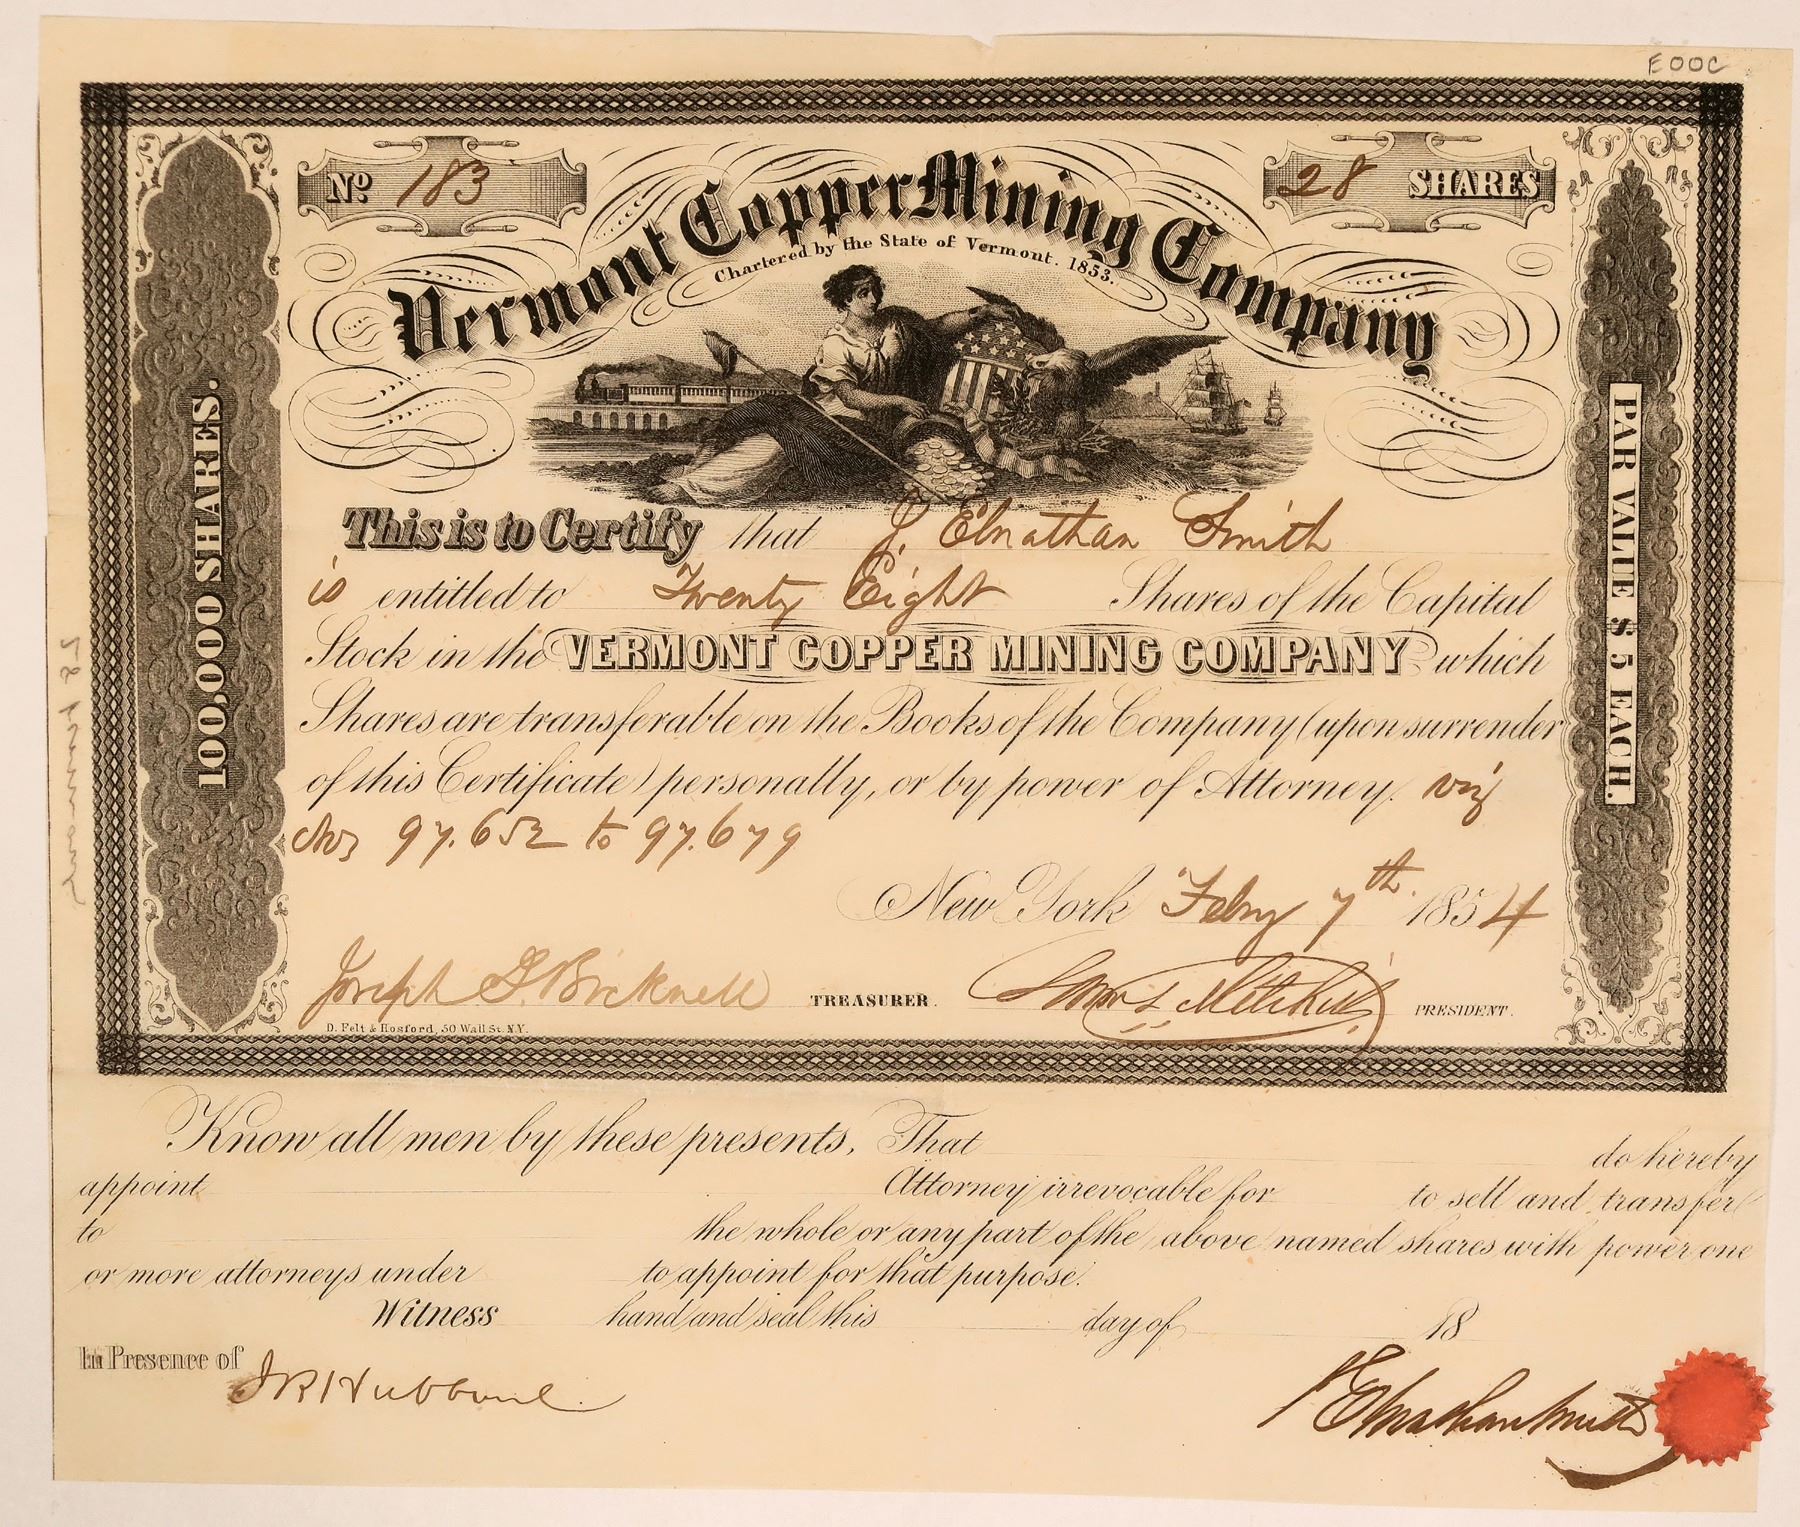 E00C
No 183
28 SHARES
Vermont Copper Mining Company
Chartered by the State of Vermont. 1853.
100,000 SHARES.
PAR VALUE $5 EACH.
This is to Certify that J. Elnathan Smith
is entitled to Twenty Eight Shares of the Capital
Stock in the VERMONT COPPER MINING COMPANY which
Shares are transferable on the Books of the Company (upon surrender
of this Certificate) personally, or by power of Attorney. viz
Nos 97.652 to 97.679
New York Feby 7th. 1854
Joseph G. Bicknell TREASURER.
Saml L Mitchill PRESIDENT.
D. Felt & Hosford, 50 Wall St. N.Y.
Know all men by these presents, That do hereby
appoint Attorney irrevocable for to sell and transfer
to the whole or any part of the above named shares with power one
or more attorneys under to appoint for that purpose.
Witness hand and seal this day of 18
In Presence of
J R Hubbard.
J Elnathan Smith